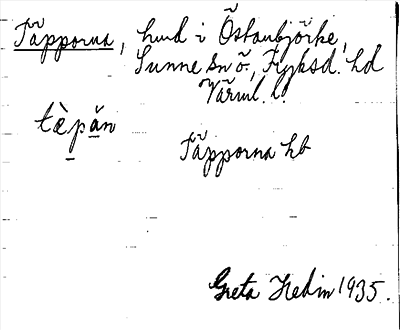 Täpporna, hmd i Östanbjörke,
Sunne sn ö., Fryksd. hd
Värml. l.
tɛ̀pᾰn
Täpporna hb
Greta Hedin 1935.